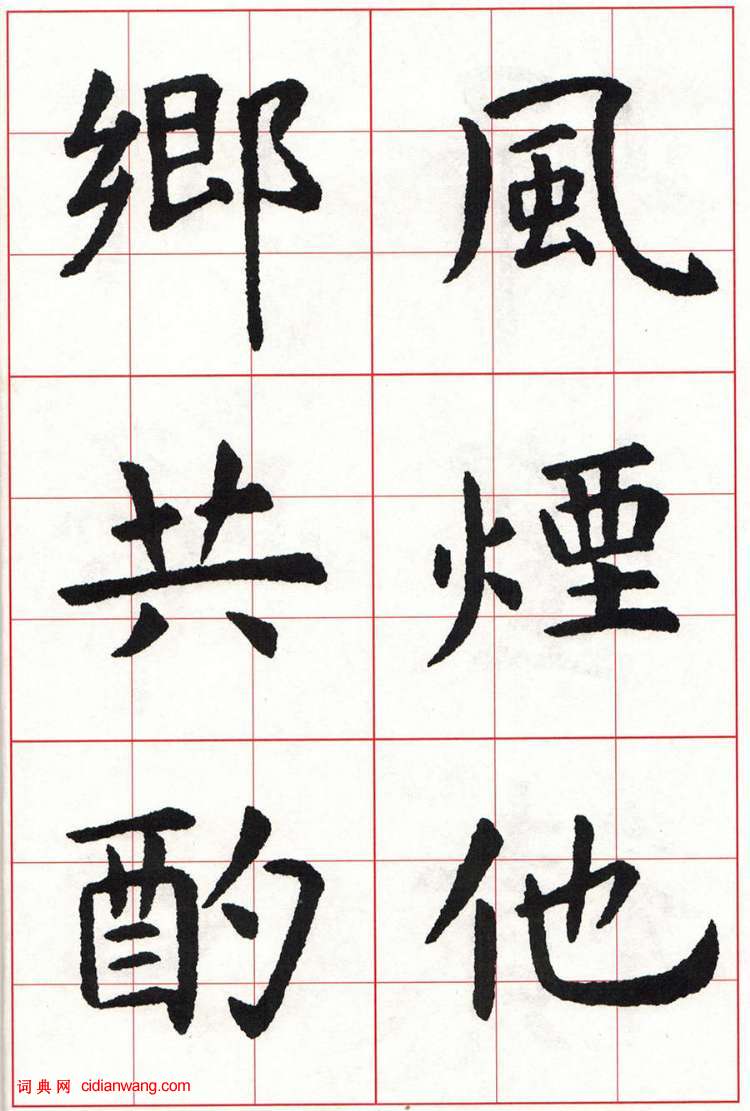 風煙他
鄉共酌
词典网 cidianwang.com